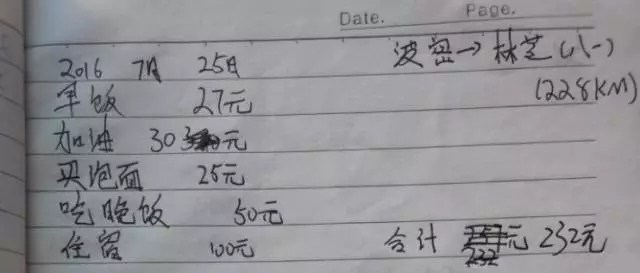 Date. Page.
2016 7月 25日 波密→林芝(八一)
早饭 27元 (228KM)
加油 30元
买泡面 25元
吃晚饭 50元
住宿 100元 合计 232元